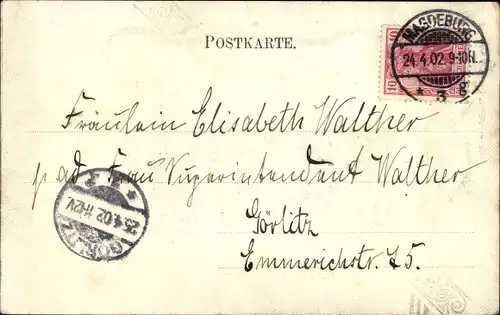 POSTKARTE.
MAGDEBURG
24.4.02. 9-10N.
* 3 g
10 10
Fräulein Elisabeth Walther
p ad. Frau Superintendent Walther
Görlitz
Emmerichstr. 75.
GÖRLITZ
25.4.02. 11-12V.